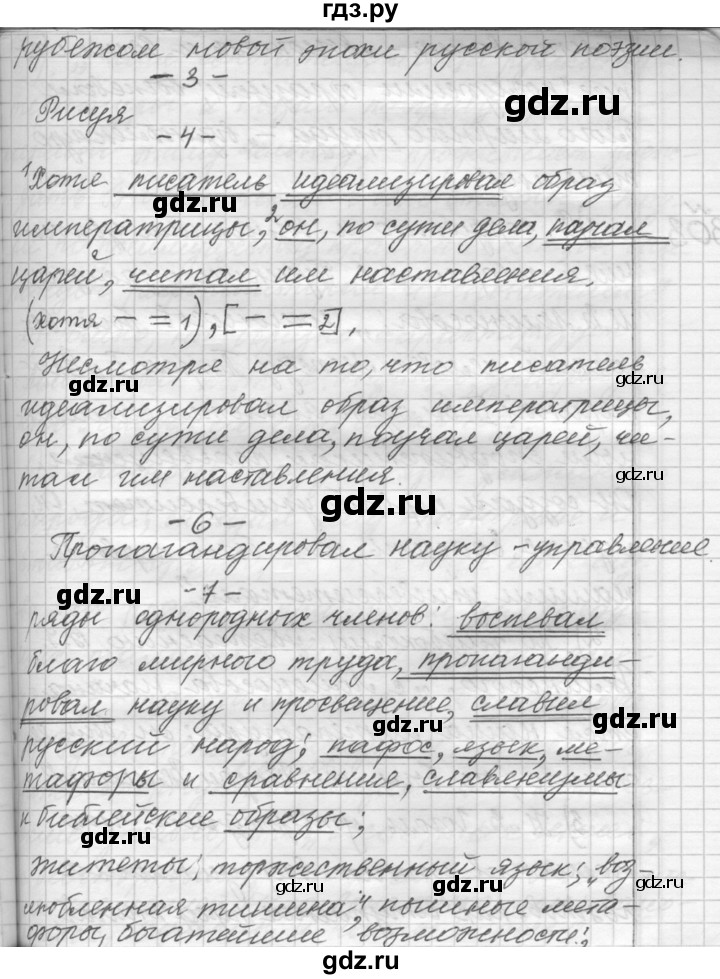 гдз.ру
рубежом новой эпохи русской поэзии.
- 3 -
gdz.ru
Рисуя
- 4 -
gdz.ru
¹Хотя писатель идеализировал образ
императрицы, ²он, по сути дела, поучал
царей, читал им наставления.
(хотя — = 1), [— = 2].
Несмотря на то, что писатель
gdz.ru gdz.ru
идеализировал образ императрицы,
он, по сути дела, поучал царей, чи-
тал им наставления.
gdz.ru
- 6 -
Пропагандировал науку - управление.
gdz.ru gdz.ru
- 7 -
ряды однородных членов: воспевал
благо мирного труда, пропаганди-
ровал науку и просвещение, славил
gdz.ru gdz.ru
русский народ; пафос, язык, ме-
тафоры и сравнения, славянизмы
и библейские образы;
gdz.ru gdz.ru
эпитеты: торжественный язык; „воз-
gdz.ru gdz.ru
любленная тишина“, пышные мета-
форы, богатейшие возможности;
gdz.ru